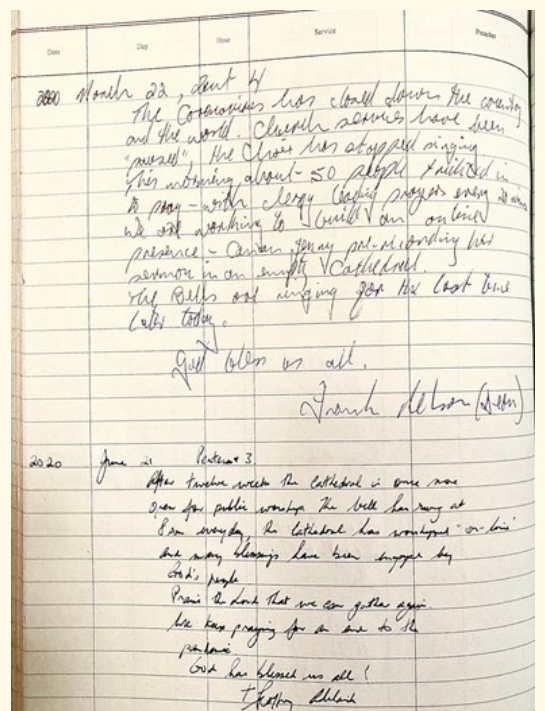 Date Day Hour Service Preacher
2020 March 22, Lent 4
The Coronavirus has closed down the country
and the world. Church services have been
"paused", the Choir has stopped singing
This morning about 50 people trickled in
to pray - with clergy leading prayers every 20 mins
we are working to build an online
presence - Canon Jenny pre-recording her
sermon in an empty Cathedral.
The Bells are ringing for the last time
later today.
God bless us all.
Frank Nelson (Dean)
2020 June 21 Pentecost 3
After twelve weeks the Cathedral is once more
open for public worship. The bell has rung at
8am everyday, the Cathedral has worshipped 'on-line'
and many blessings have been enjoyed by
God's people
Praise the Lord that we can gather again.
We keep praying for an end to the
pandemic.
God has blessed us all!